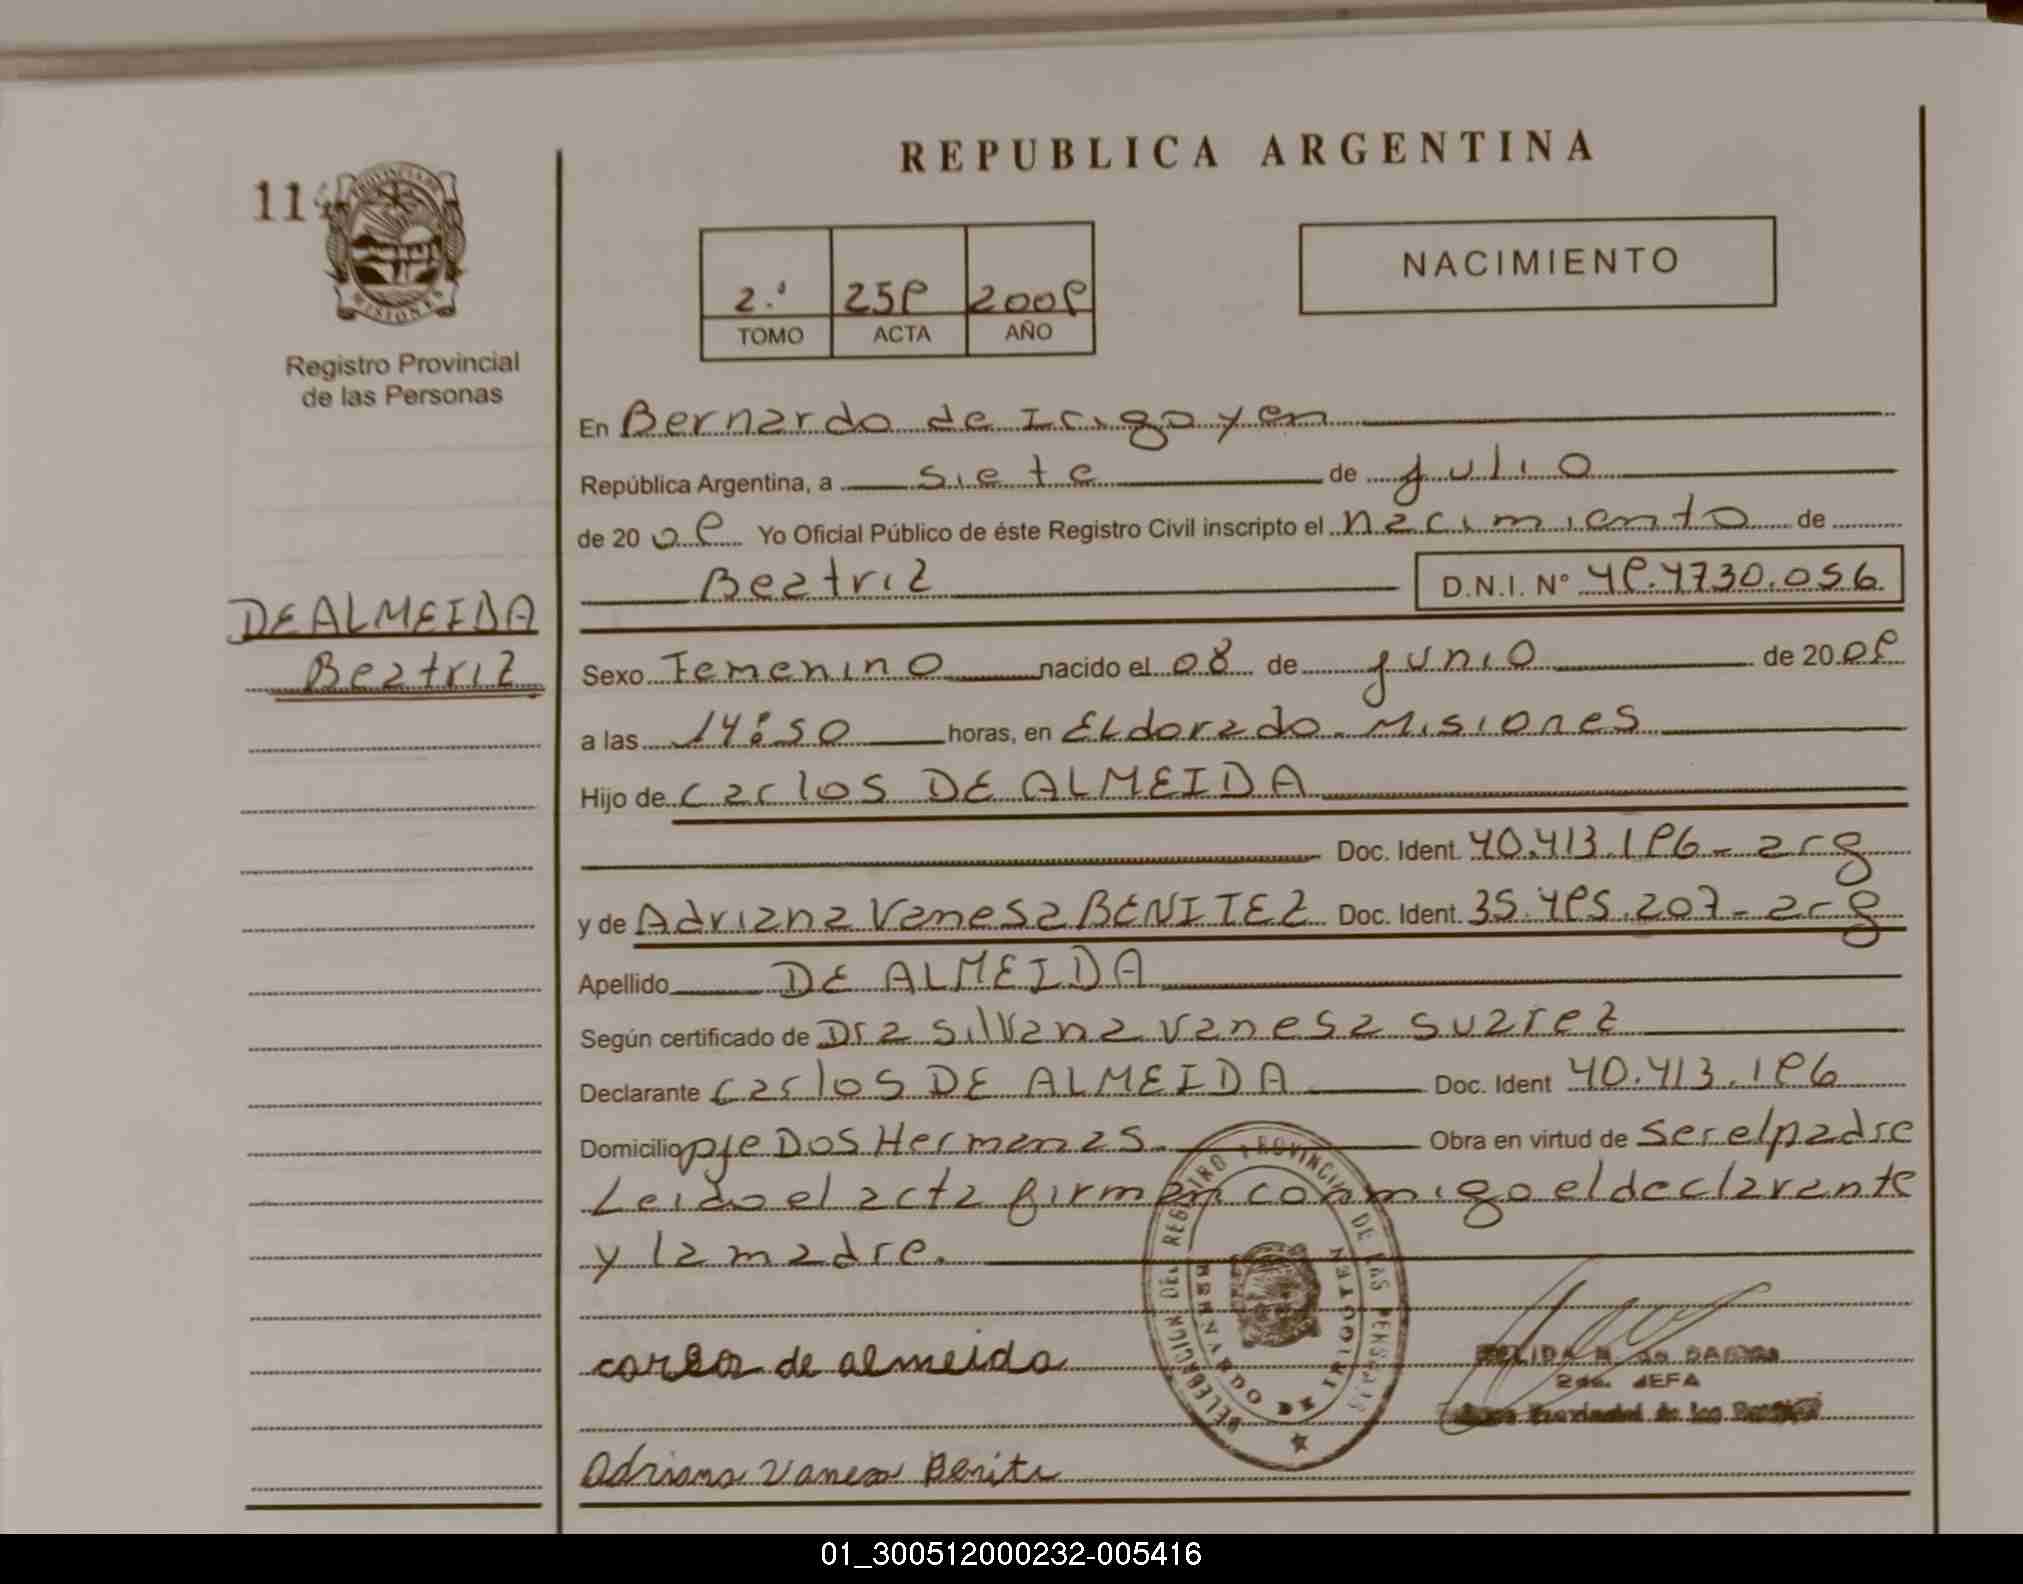 REPUBLICA ARGENTINA
11
PROVINCIA DE
MISIONES
Registro Provincial
de las Personas
2.' 259 2009
TOMO ACTA AÑO
NACIMIENTO
En Bernardo de Irigoyen
República Argentina, a siete de julio
de 20 09 Yo Oficial Público de éste Registro Civil inscripto el nacimiento de
Beatriz D.N.I. Nº 49.4730.056
DE ALMEIDA
Beatriz
Sexo Femenino nacido el 08 de junio de 20 09
a las 14:50 horas, en ELdorado. Misiones
Hijo de Carlos DE ALMEIDA
Doc. Ident. 40.413.196 - arg
y de Adriana Vanesa BENITEZ Doc. Ident. 35.495.207 - arg
Apellido DE ALMEIDA
Según certificado de Dra Silvana Vanesa Suarez
Declarante Carlos DE ALMEIDA Doc. Ident 40.413.196
Domicilio pje Dos Hermanas Obra en virtud de ser el padre
Leido el acta firman conmigo el declarante
y la madre.
DELEGACION DEL REGISTRO PROVINCIAL DE LAS PERSONAS
BERNARDO DE IRIGOYEN
carlos de almeida
2da. JEFA
Provincial de las
Adriana Vanesa Benitez
01_300512000232-005416